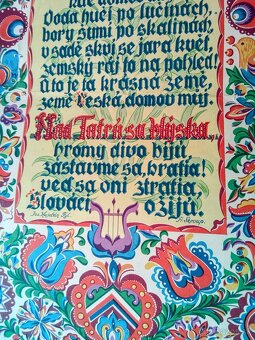 kde domov
Voda hučí po lučinách,
bory šumí po skalinách,
v sadě skví se jara květ,
zemský ráj to na pohled!
A to je ta krásná země,
země česká, domov můj.
Nad Tatrú sa blýska,
hromy divo bijú
zastavme sa, bratia!
veď sa oni ztratia,
Slováci ožijú.